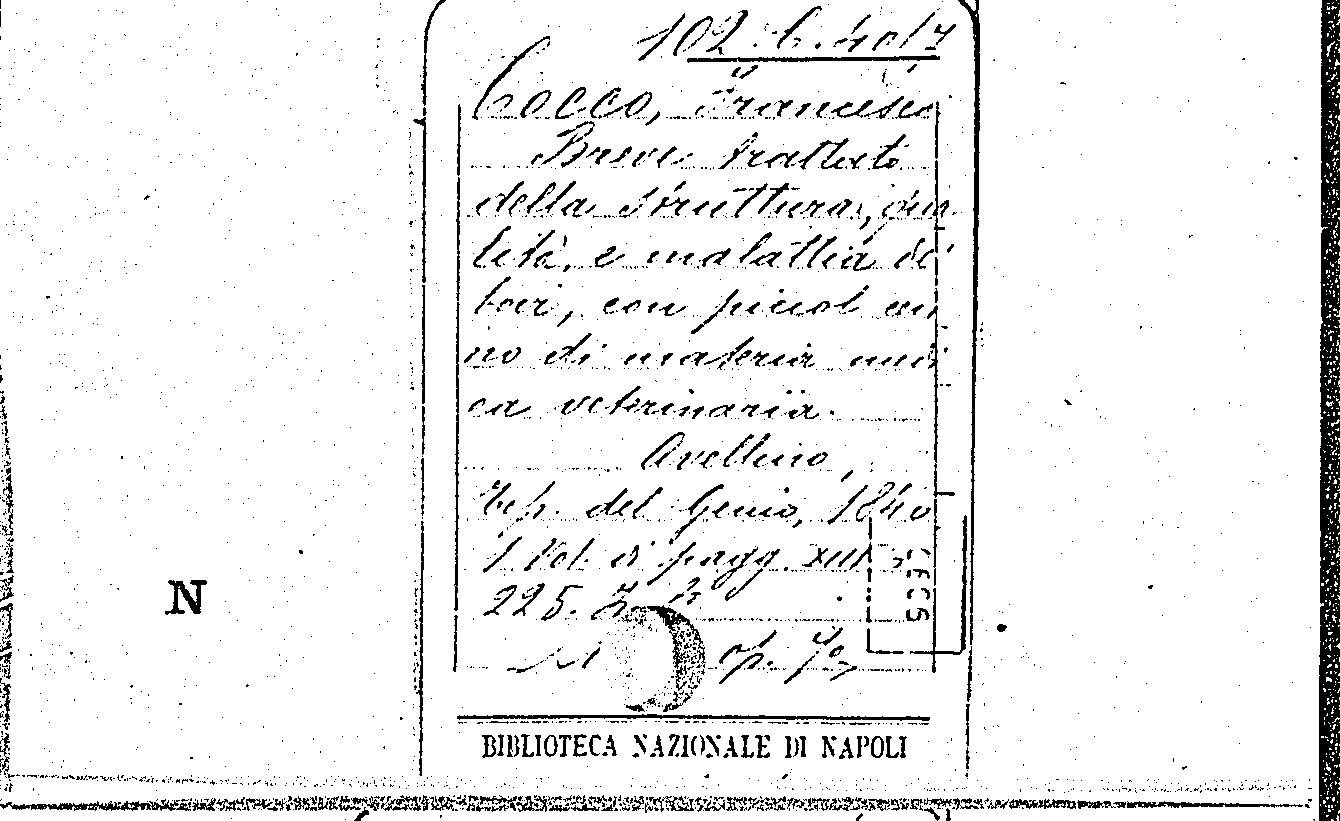 102.C.40/7
Cocco, Francesco
Breve trattato
della struttura, qua
lità, e malattia dei
bovi, con piccol cen
no di materia medi
ca veterinaria.
Avellino,
Tip. del Genio, 1840
1 Vol. di pagg. XIII
225.
op. 7
N
BIBLIOTECA NAZIONALE DI NAPOLI